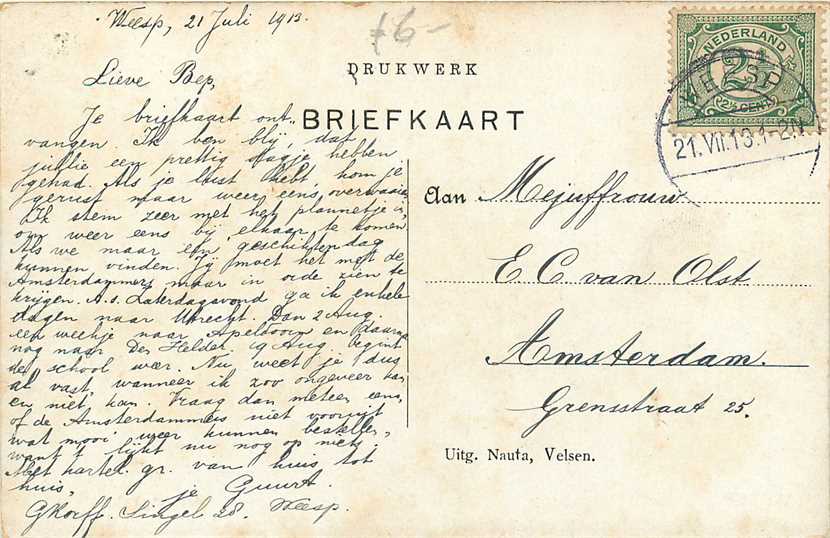 Weesp, 21 Juli 1913.
f6-
DRUKWERK
BRIEFKAART
NEDERLAND
2½
2½ CENT
WEESP
21.VII.13.1-2N
Lieve Bep,
Je briefkaart ont-
vangen. Ik ben blij, dat
jullie een prettig dagje hebben
gehad. Als je lust hebt kom je
gerust maar weer eens over
Ik stem zeer met het plannetje in,
om weer eens bij elkaar te komen
Als we maar een geschikten dag
kunnen vinden. Jij moet het met de
Amsterdammers maar in orde zien te
krijgen. A.s. Zaterdagavond ga ik enkele
dagen naar Utrecht. Dan 2 Aug.
een weekje naar Apeldoorn en daarna
nog naar Den Helder. 19 Aug. begint
de school weer. Nu weet je dus
al vast wanneer ik zoo ongeveer kan
en niet kan. Vraag dan meteen eens,
of de Amsterdammers niet vooruit
wat mooi weer kunnen bestellen,
want 't lijkt nu nog op niets.
Met hartel. gr. van huis tot
huis,
je Guurt.
GKorff. Singel 28. Weesp.
Aan Mejuffrouw
E C van Olst
Amsterdam.
Grensstraat 25.
Uitg. Nauta, Velsen.